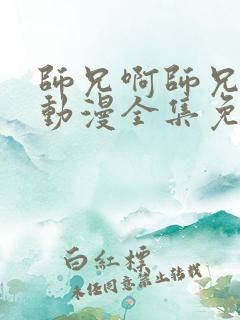 師兄啊師兄
動漫全集免
白紅標
未任同意禁止轉載